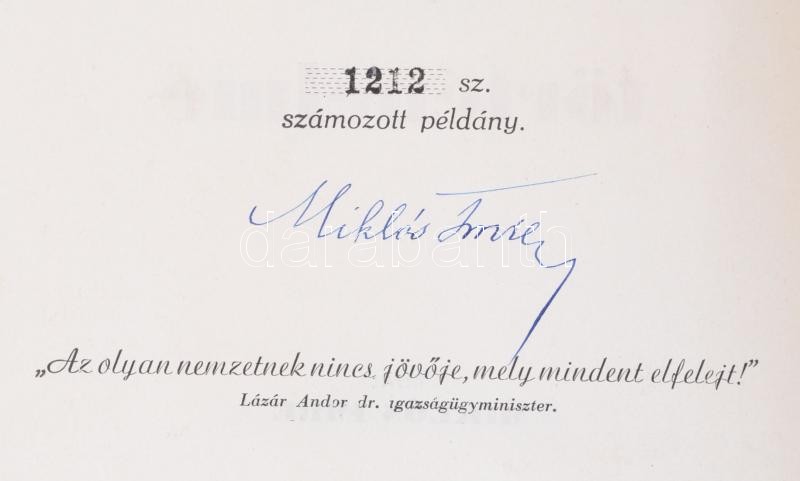 1212 sz.
számozott példány.
Miklós Imre
darabanth
„Az olyan nemzetnek nincs jövője, mely mindent elfelejt!”
Lázár Andor dr. igazságügyminiszter.